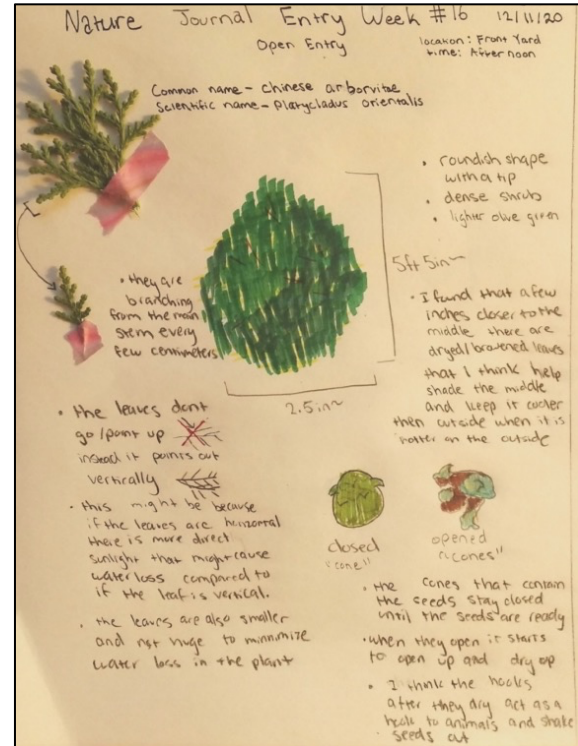 Nature Journal Entry Week #16 12/11/20
Open Entry
location: Front Yard
time: Afternoon
Common name - Chinese arborvitae
Scientific name - Platycladus orientalis
• roundish shape
with a tip
• dense shrub
• lighter olive green
5ft 5in~
• they are
branching
from the main
stem every
few centimeters
2.5in~
• I found that a few
inches closer to the
middle there are
dryed/browned leaves
that I think help
shade the middle
and keep it cooler
then outside when it is
hotter on the outside
• the leaves dont
go/point up
instead it points out
vertically
• this might be because
if the leaves are horizontal
there is more direct
sunlight that might cause
water loss compared to
if the leaf is vertical.
• the leaves are also smaller
and not huge to minnimize
water loss in the plant
closed
"cone"
opened
"cones"
• the cones that contain
the seeds stay closed
until the seeds are ready
• when they open it starts
to open up and dry up
• I think the hooks
after they dry act as a
hook to animals and shake
seeds out